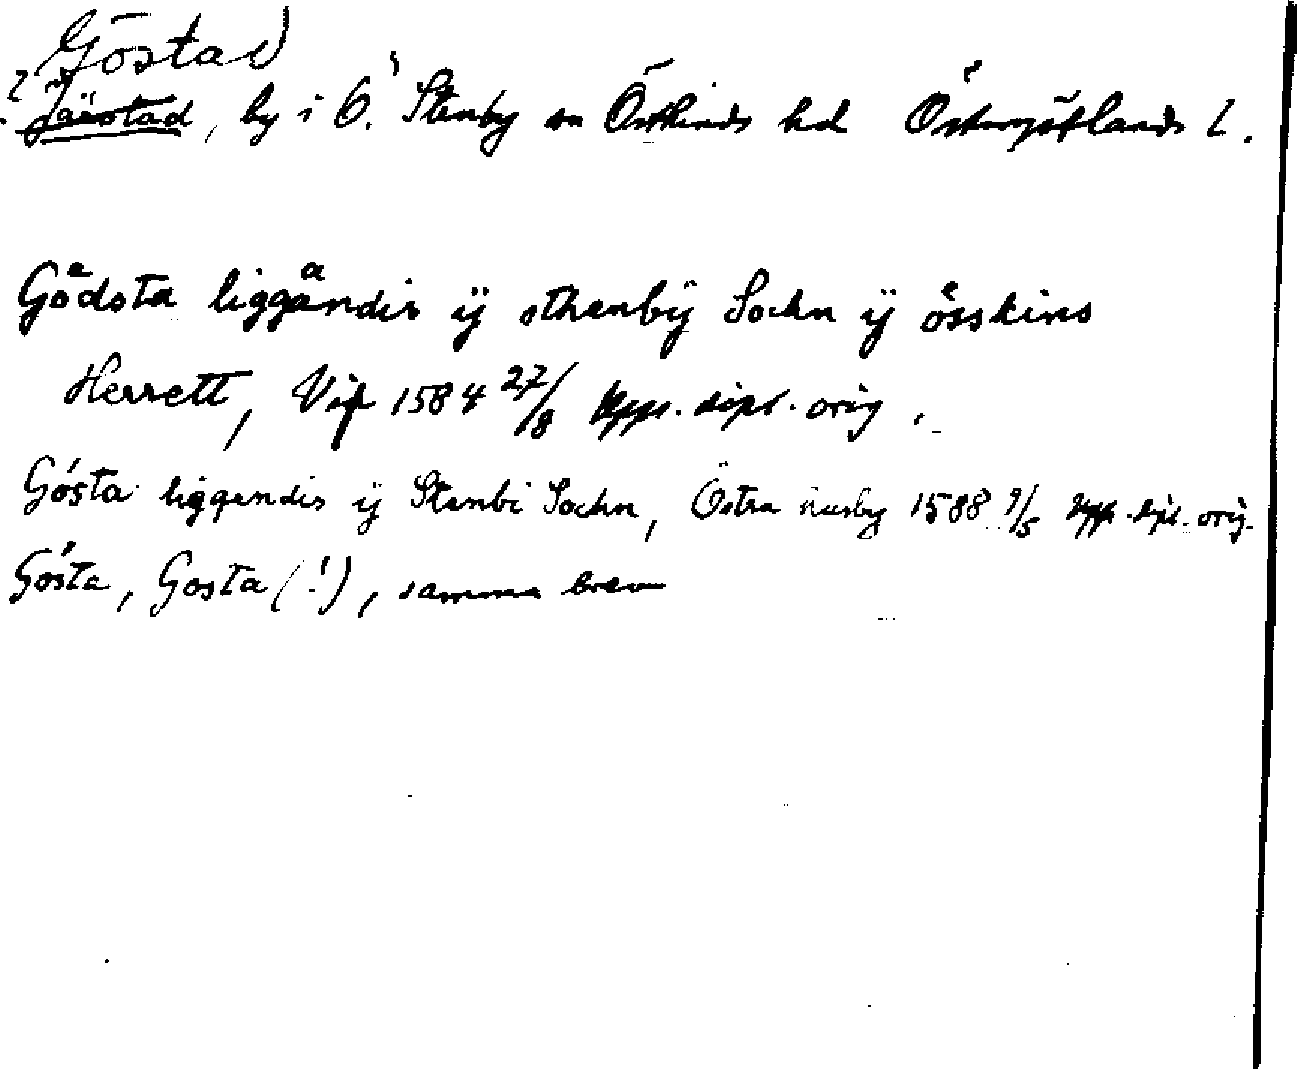 Göstad
? Jäestad, by i Ö. Stenby sn Östkinds hd Östergötlands l.
Gödsta liggåndis ÿ sthenbÿ Sochn ÿ össkins
Herrett, Vip 1584 27/8 Upps. dipl. orig.
Gósta liggendis ÿ Stenbi Sochn, Östra Husby 1588 9/5 Upps. dipl. orig.
Gösta, Gosta (!), samma brev